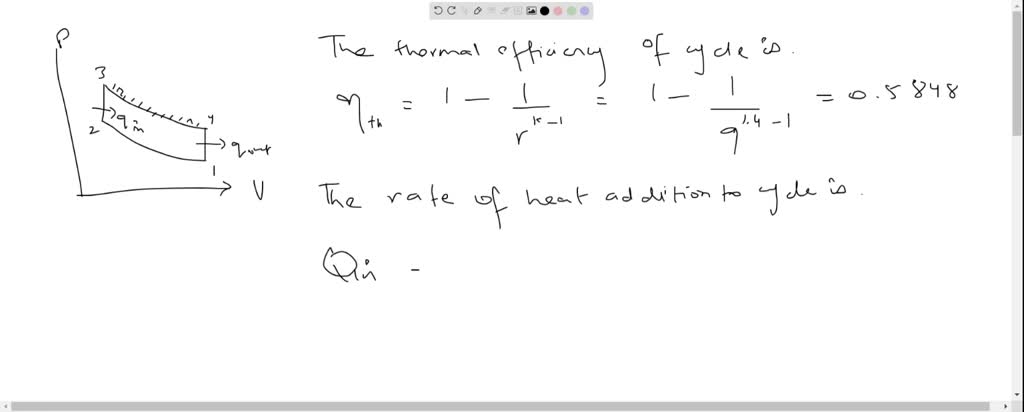 P
3
4
2
q in
q out
1
V
The thermal efficiency of cycle is.
η_th = 1 - 1/r^(k-1) = 1 - 1/9^(1.4-1) = 0.5848
The rate of heat addition to cycle is.
Q in -